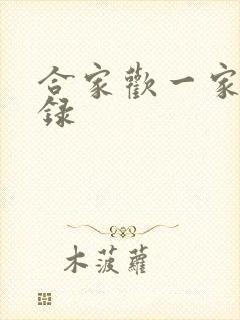 合家歡一家
録
木菠蘿